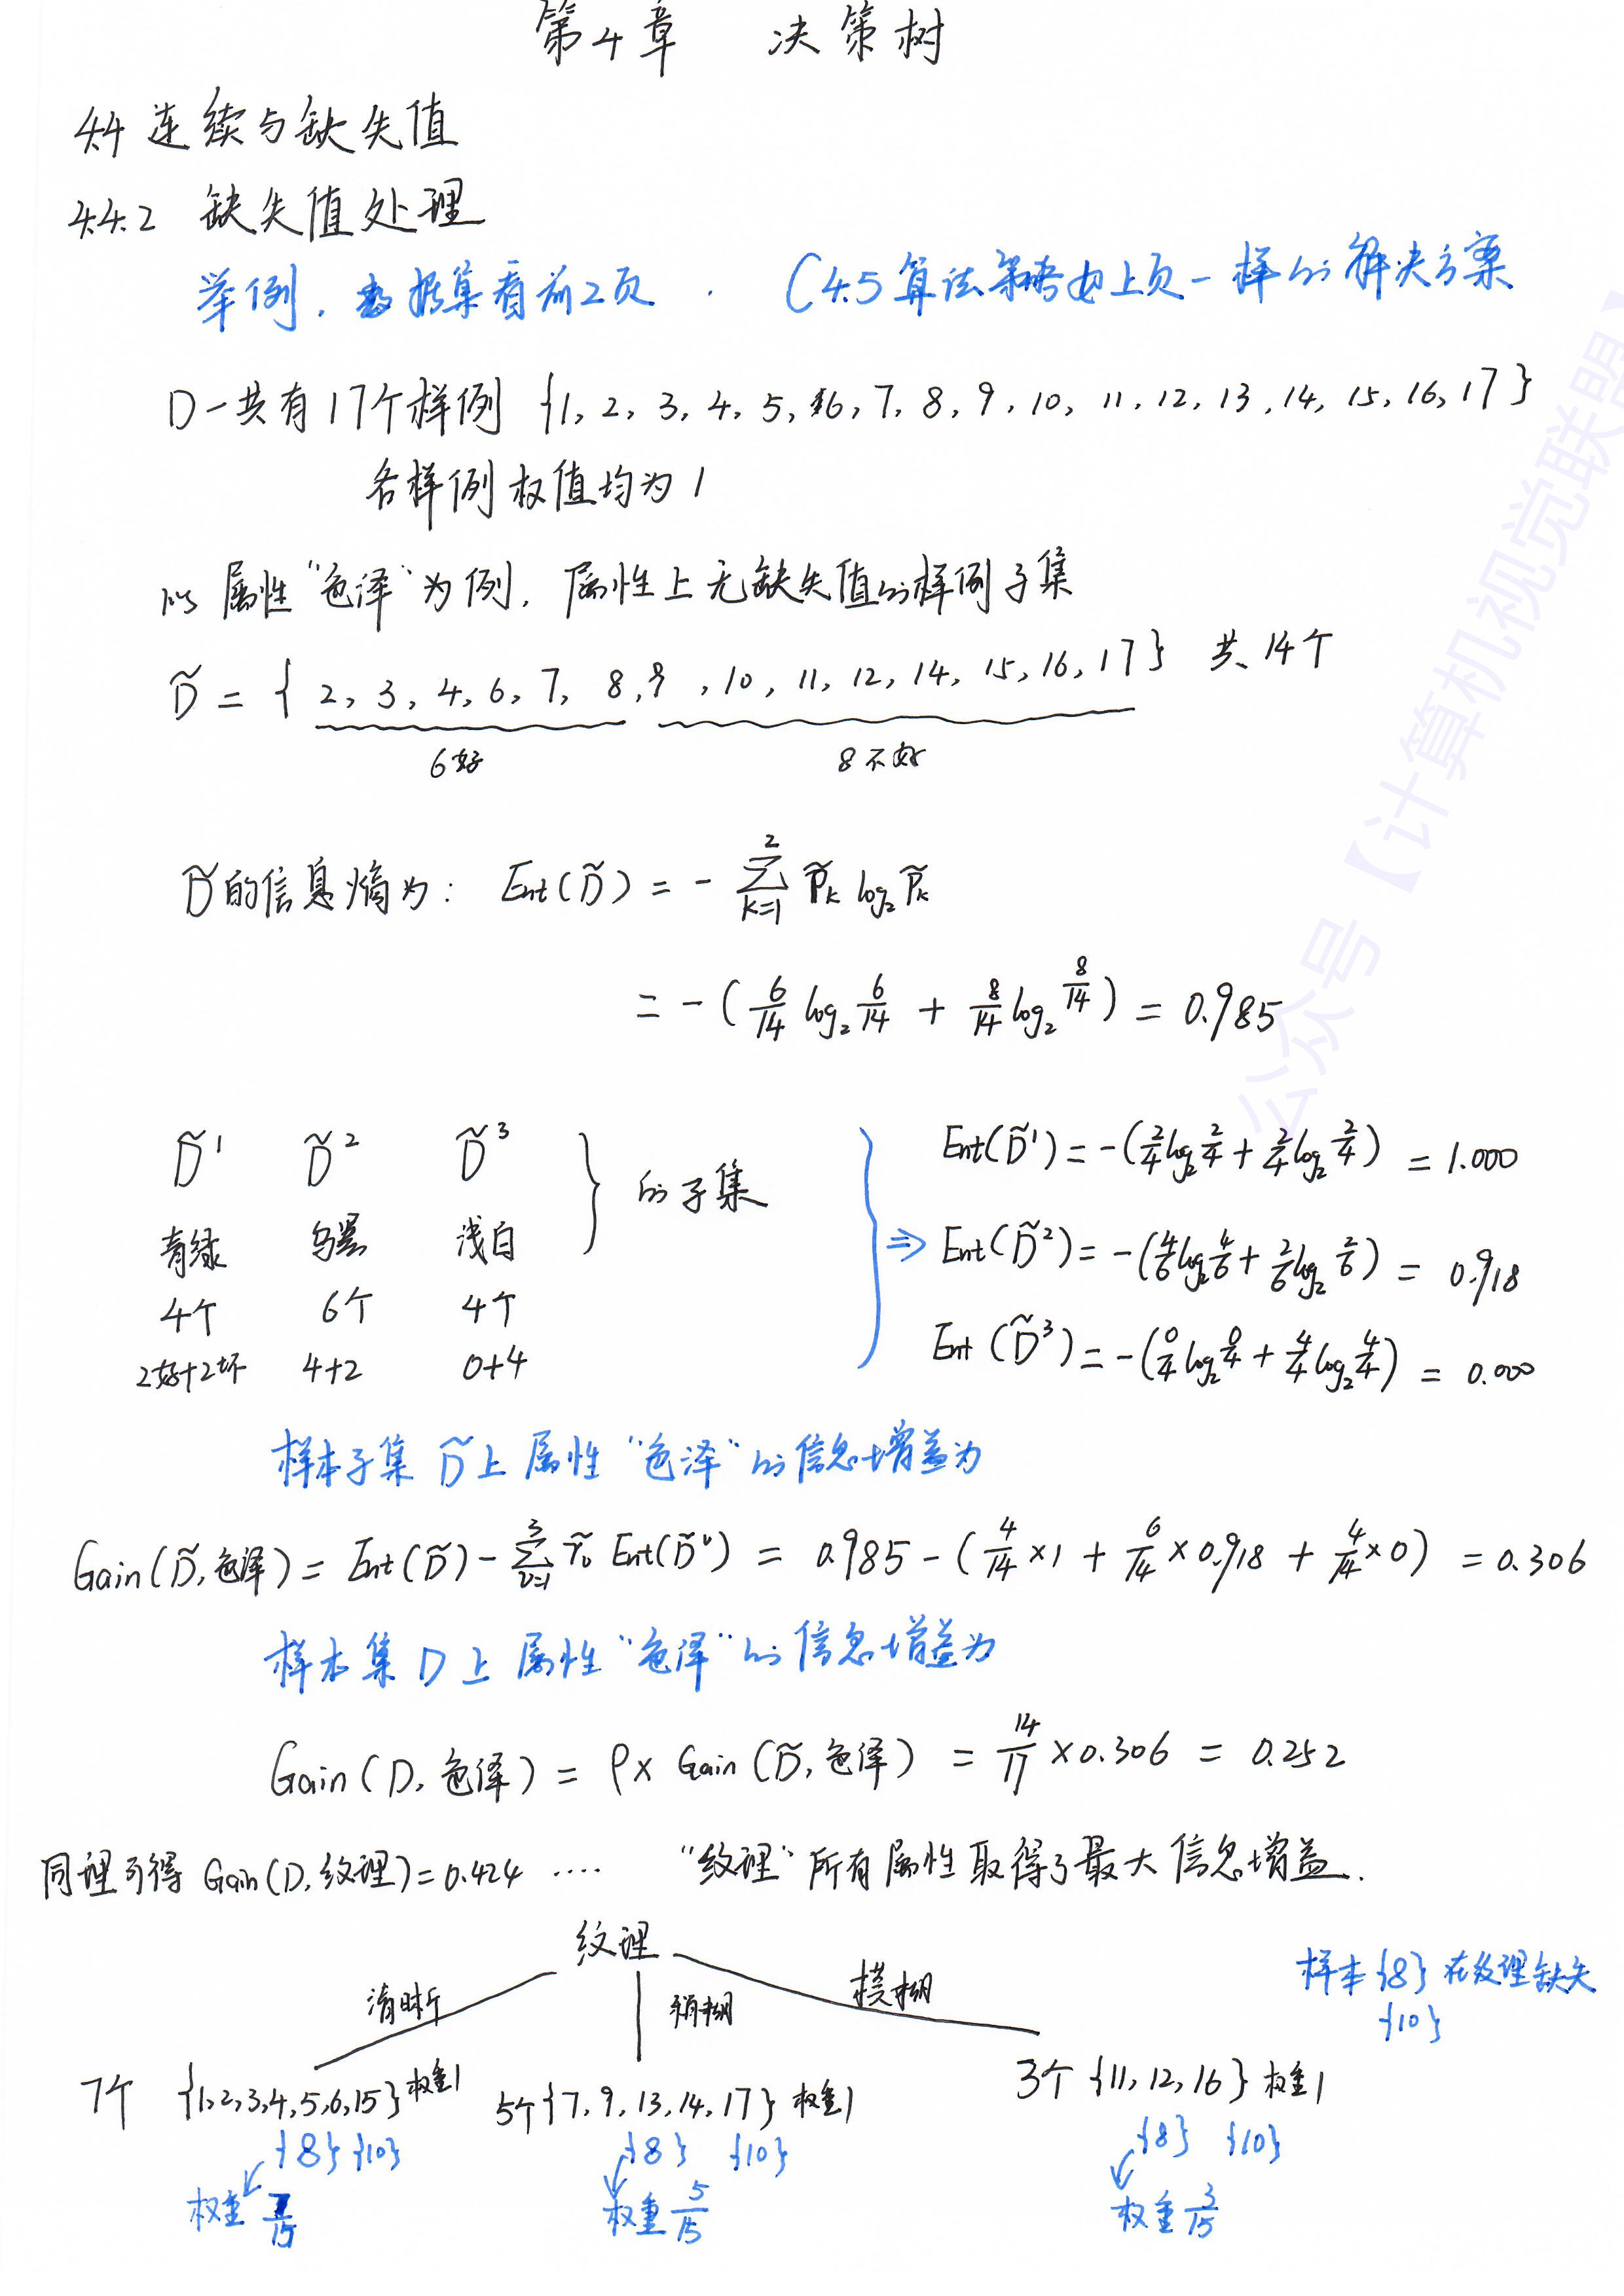 第4章 决策树
4.4 连续与缺失值
4.4.2 缺失值处理
举例, 数据集看前2页. C4.5算法 上页一样的解决方案
D一共有17个样例 {1, 2, 3, 4, 5, 6, 7, 8, 9, 10, 11, 12, 13, 14, 15, 16, 17}
各样例权值均为1
以属性“色泽”为例, 属性上无缺失值的样例子集
D̃ = { 2, 3, 4, 6, 7, 8, 9, 10, 11, 12, 14, 15, 16, 17} 共14个
6好 8不好
D̃的信息熵为: Ent(D̃) = - ∑_{k=1}^{2} p̃_k log₂ p̃_k
= -(6/14 log₂ 6/14 + 8/14 log₂ 8/14) = 0.985
D̃¹ D̃² D̃³ } 的子集
青绿 乌黑 浅白
4个 6个 4个
2好+2坏 4+2 0+4
⇒ Ent(D̃¹) = -(2/4 log₂ 2/4 + 2/4 log₂ 2/4) = 1.000
Ent(D̃²) = -(4/6 log₂ 4/6 + 2/6 log₂ 2/6) = 0.918
Ent(D̃³) = -(0/4 log₂ 0/4 + 4/4 log₂ 4/4) = 0.000
样本子集 D̃ 上属性“色泽”的信息增益为
Gain(D̃, 色泽) = Ent(D̃) - ∑_{v=1}^{3} r̃_v Ent(D̃ᵛ) = 0.985 - (4/14 × 1 + 6/14 × 0.918 + 4/14 × 0) = 0.306
样本集 D 上属性“色泽”的信息增益为
Gain(D, 色泽) = ρ × Gain(D̃, 色泽) = 14/17 × 0.306 = 0.252
同理可得 Gain(D, 纹理) = 0.424 ···· “纹理”所有属性取得了最大信息增益.
纹理
清晰 稍糊 模糊
样本{8}在纹理缺失
{10}
7个 {1,2,3,4,5,6,15} 权重1
{8} {10}
权重 7/15
5个{7, 9, 13, 14, 17} 权重1
{8} {10}
权重 5/15
3个 {11, 12, 16} 权重1
{8} {10}
权重 3/15
公众号【计算机视觉联盟】